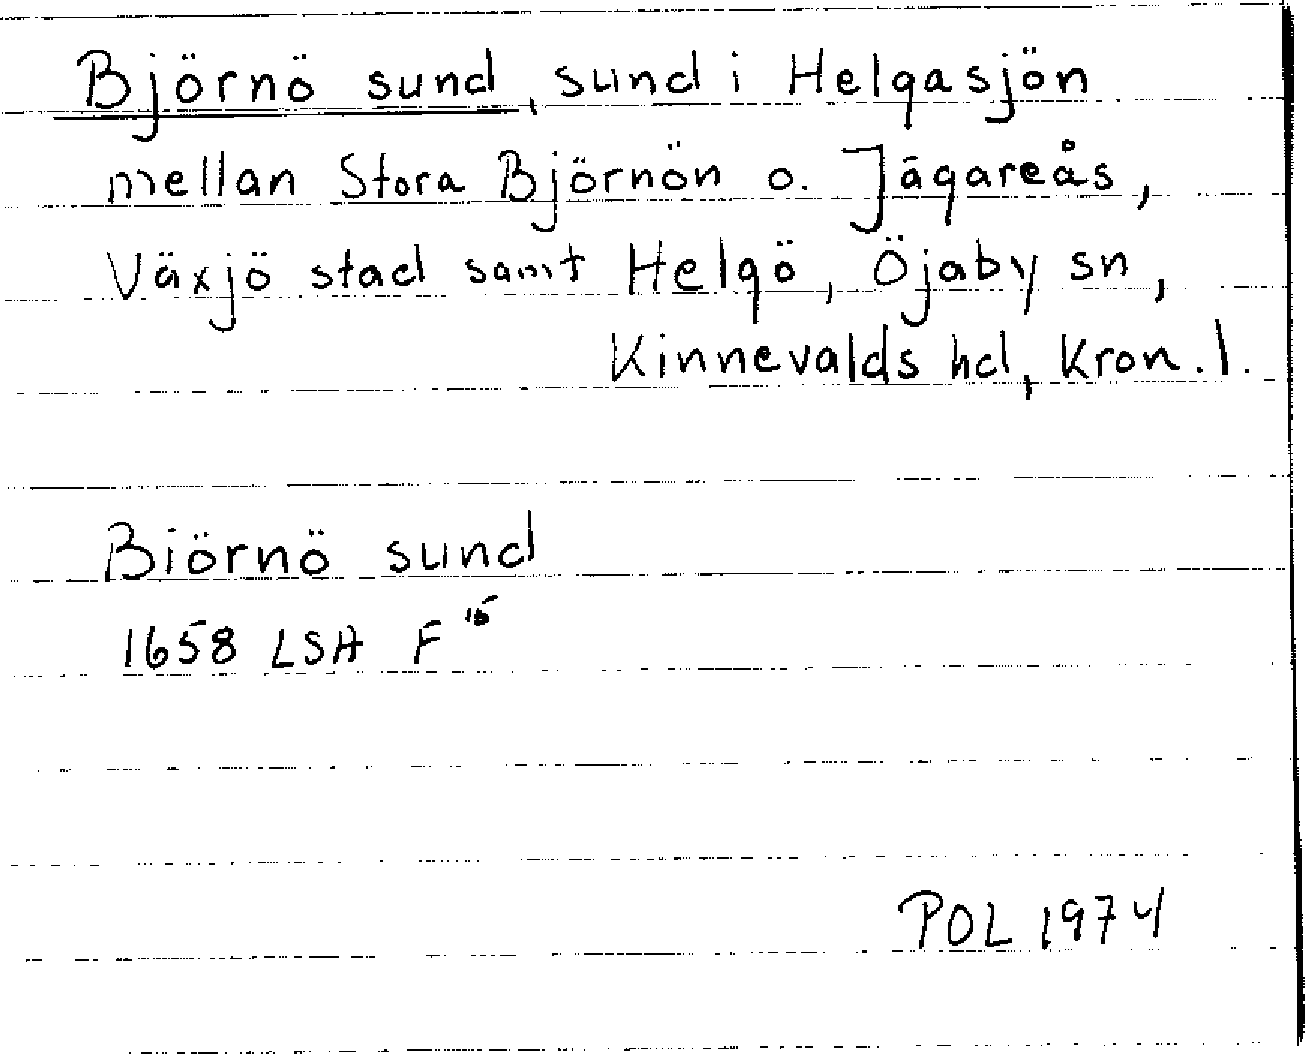 Björnö sund, sund i Helgasjön
mellan Stora Björnön o. Jägareås,
Växjö stad samt Helgö, Öjaby sn,
Kinnevalds hd, Kron. l.
Biörnö sund
1658 LSA F 15
POL 1974